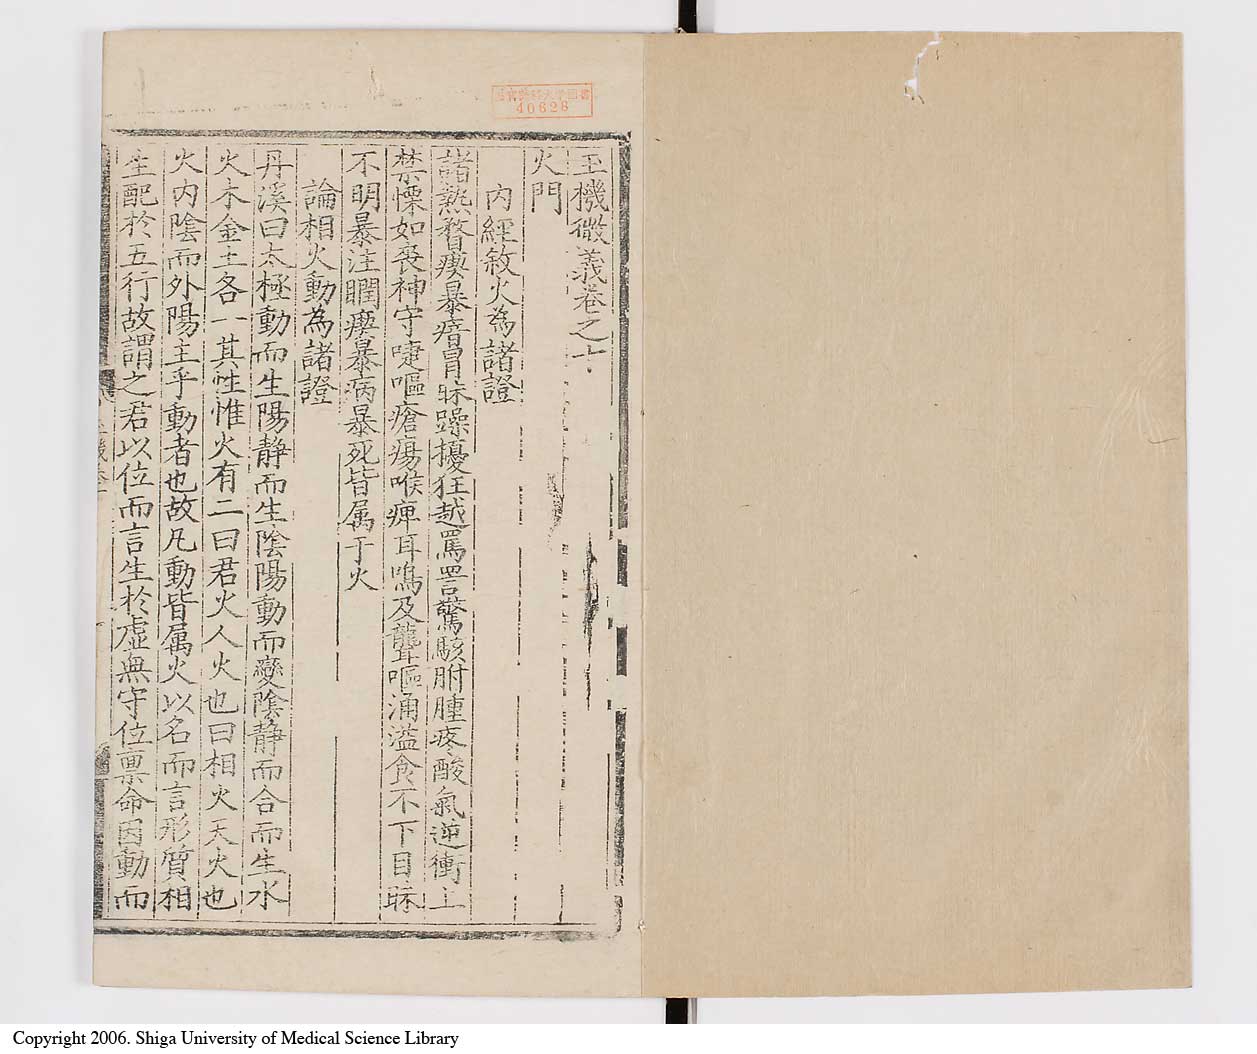 玉機微義卷之十
火門
內經敘火為諸證
諸熱瞀瘈暴瘖冒昧躁擾狂越罵詈驚駭胕腫疼酸氣逆衝上
禁慄如喪神守嚏嘔瘡瘍喉痺耳鳴及聾嘔涌溢食不下目昧
不明暴注瞤瘈暴病暴死皆属于火
論相火動為諸證
丹溪曰太極動而生陽靜而生陰陽動而變陰靜而合而生水
火木金土各一其性惟火有二曰君火人火也曰相火天火也
火內陰而外陽主乎動者也故凡動皆属火以名而言形質相
生配於五行故謂之君以位而言生於虛無守位禀命因動而
40628
Copyright 2006. Shiga University of Medical Science Library